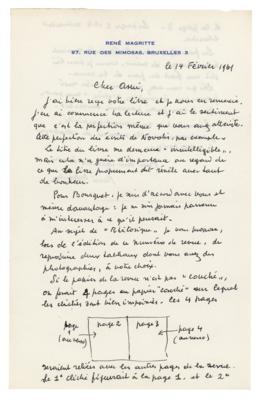 RENÉ MAGRITTE
97, RUE DES MIMOSAS, BRUXELLES 3
le 14 Février 1961
Cher Ami,
J'ai bien reçu votre livre et je vous en remercie.
J'en ai commencé la lecture et j'ai le sentiment
que c'est la perfection même que vous avez atteinte.
Cette perfection des écrits de Novalis, par exemple.
Le titre du livre me demeure "inintelligible",
mais cela n'a guère d'importance au regard de
ce que le livre proprement dit révèle avec tant
de bonheur.
Pour Bousquet. je suis d'accord avec vous et
même davantage : je ne suis jamais parvenu
à m'intéresser à ce qu'il écrivait.
Au sujet de "Rhétorique". je vous propose,
lors de l'édition de ce numéro de revue, de
reproduire deux tableaux dont vous avez des
photographies, à votre choix.
Si le papier de la revue n'est pas "couché",
on ferait 4 pages en papier "couché" sur lequel
les clichés sont bien imprimés. les 4 pages
page 1 (au recto)
page 2
page 3
page 4
(au verso)
seraient reliées avec les autres pages de la revue.
Le 1er cliché figurerait à la page 1, et le 2e